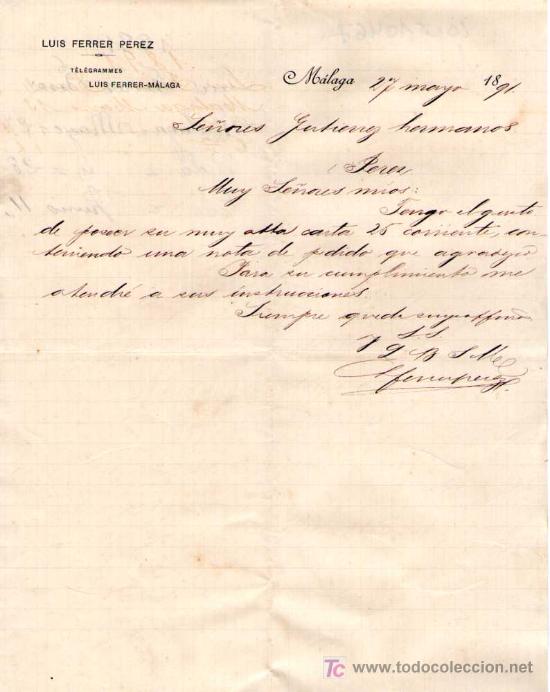 LUIS FERRER PEREZ
TÉLÉGRAMMES
LUIS FERRER-MÁLAGA
Málaga 27 mayo 1891
Señores Gutierrez hermanos
Jerez
Muy Señores mios:
Tengo el gusto
de poseer su muy atta carta 25 corriente, con
teniendo una nota de pedido que agradezco
Para su cumplimiento me
atendré a sus instrucciones.
Siempre quedo suyo affmo
S. S.
q B S M
TC
www.todocoleccion.net